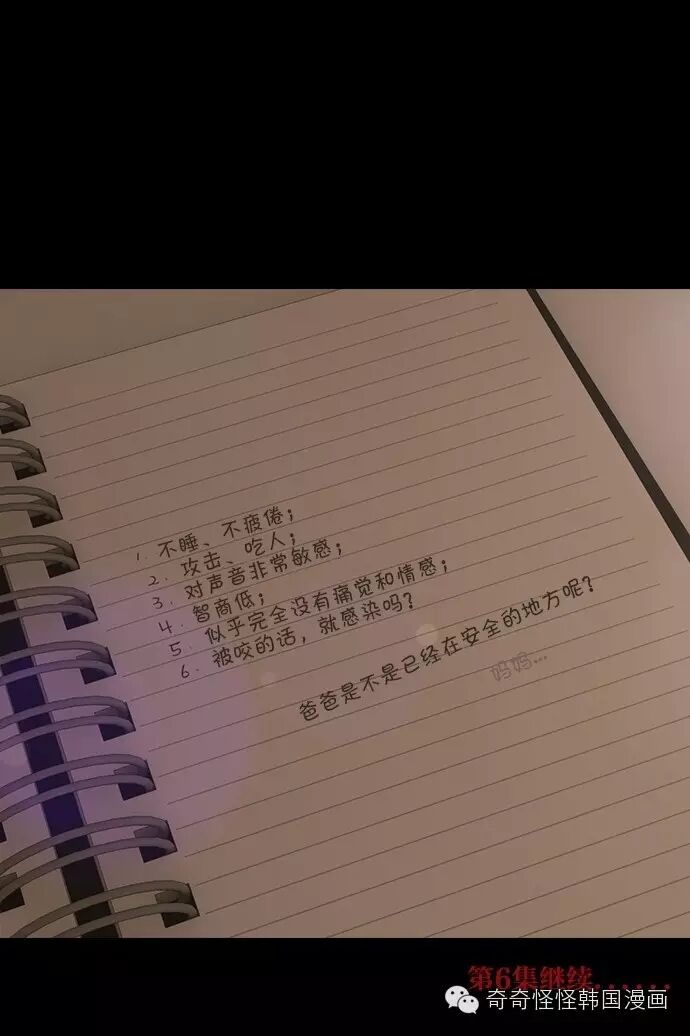 1. 不睡、不疲倦；
2. 攻击、吃人；
3. 对声音非常敏感；
4. 智商低；
5. 似乎完全没有痛觉和情感；
6. 被咬的话，就感染吗？
爸爸是不是已经在安全的地方呢？
妈妈...
第6集继续......
奇奇怪怪韩国漫画